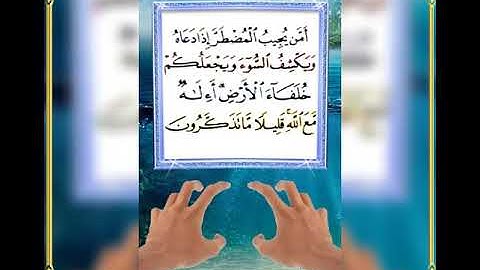 أَمَّن يُجِيبُ الْمُضْطَرَّ إِذَا دَعَاهُ
وَيَكْشِفُ السُّوٓءَ وَيَجْعَلُكُمْ
خُلَفَآءَ الْأَرْضِ أَءِلَٰهٌ
مَّعَ اللَّهِ قَلِيلًا مَّا تَذَكَّرُونَ